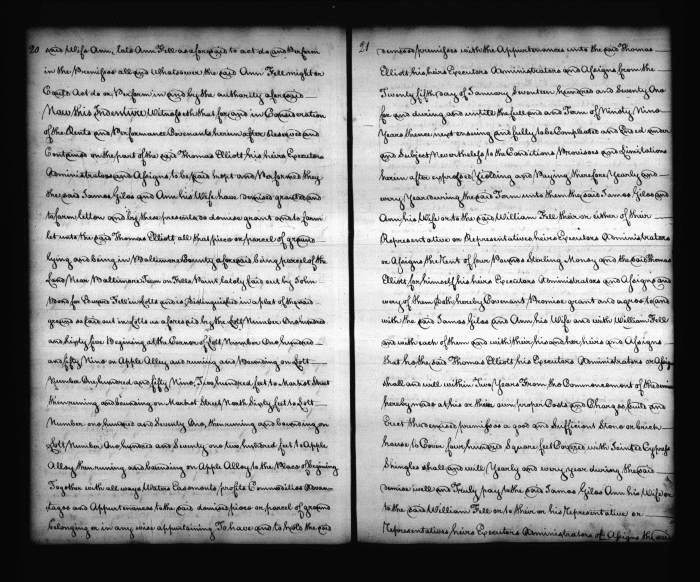 20
said Wife Ann, late Ann Fell as aforesaid to act do and Perform
in the Premisses all and Whatsoever the said Ann Fell might or
Could Act do or Perform in and by the authority aforesaid
Now this Indenture Witnesseth that for and in Consideration
of the Rents and Performance Covenants herein after Reserved and
Contained on the part of the said Thomas Elliott his heirs Executors
Administrators and Assigns to be paid kept and Performed they
the said James Giles and Ann his Wife have demised granted and
to farm letten and by these presents do demise grant and to farm
let unto the said Thomas Elliott all that piece or parcel of ground
lying and being in Baltimore County aforesaid being parcel of the
Land Near Baltimore Town on Fells Point lately laid out by John
Bond for Edward Fell in Lotts and is distinguished in a plat of the said
ground so laid out in Lotts as aforesaid by the Lott Number One hundred
and sixty five Begining at the Corner of Lott Number One hundred
and fifty Nine on Apple Alley and runing and Bounding on Lott
Number One hundred and fifty Nine, Two hundred feet to Market Street
then runing and bounding on Market Street North Sixty feet to Lott
Number one hundred and Seventy One, then runing and bounding on
Lott Number One hundred and Seventy one two hundred feet to Apple
Alley then runing and bounding on Apple Alley to the Place of Begining
Together with all ways Waters Easements, profits Commodities Advan-
tages and Appurtenances to the said demised piece or parcel of ground
belonging or in any wise appertaining To have and to hold the said
21
demised premisses with the Appurtenances unto the said Thomas
Elliott his heirs Executors Administrators and Assigns from the
Twenty fifth Day of January Seventeen hundred and Seventy One
for and during and untill the full end and Term of Ninety Nine
Years thence next ensuing and fully to be Compleated and Ended under
and Subject Nevertheless to the Conditions Provisoes and Limitations
herein after expressed Yielding and Paying therefore Yearly and
every Year during the said Term unto them the said James Giles and
Ann his Wife or to the said William Fell their or either of their
Representative or Representatives, heirs Executors Administrators
or Assigns the Rent of four pounds Sterling Money and the said Thomas
Elliott for himself his heirs Executors Administrators and Assigns and
every of them doth hereby Covenant Promise grant and agree to and
with the said James Giles and Ann his Wife and with William Fell
and with each of them and with their his and her heirs and Assigns
that he the said Thomas Elliott his Executors Administrators or Assigns
shall and will within Years From the Commencement of the demise
hereby made at his or their own proper Costs and Charges build and
Erect the demised premises a good and Sufficient Stone or brick
house to Cover four hundred Square feet Covered with Jointed Cypress
Shingles shall and will Yearly and every year during the said
demise well and Truly pay to the said James Giles Ann his Wife or
to the said William Fell or to their or his Representative or
Representatives, heirs Executors Administrators or Assigns the said